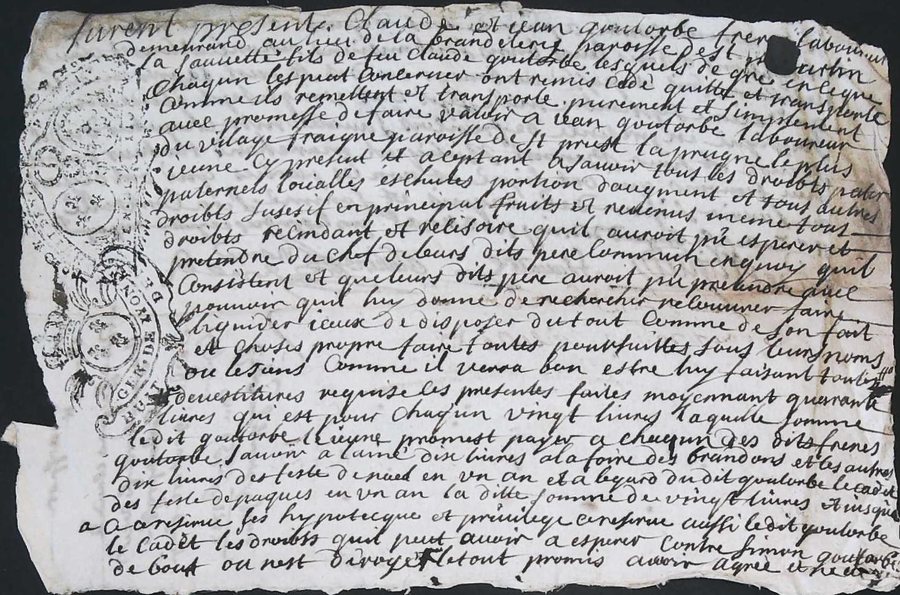 furent presents Claude et jean goutorbe freres laboureur
demeurand au lieu de la paroisse de st martin
la sauvette fils de feu Claude goutorbe lesquels de gre en ce que
chaqun les peut concerner ont remis cede quitte et transporte
comme ils remettent et transporte purement et simplement
avec promesse de faire valoir a jean goutorbe laboureur
du vilage fraigne paroisse de st priest laprugne le plus
jeune cy present et aceptant a savoir tous les droibts
paternels eschutes portion d'augment et tous autres
droibts susesif en principal fruits et revenus meme tous
droibts recindant et resisoire quil auroit pu esperer et
pretendre du chef de leurs dits pere commun en quoy quil
consistent et que leurs dits pere auroit pu pretendre avec
pouvoir quil luy donne de rechercher recouvrer faire
liquider iceux de disposer du tout comme de son fait
et choses propre faire toutes poursuittes sous leurs noms
ou le sien comme il verra bon estre luy faisant toutes
devestitures requise les presentes faites moyennant quarante
livres qui est pour chaqun vingt livres laquelle somme
ledit goutorbe le jeune promest payer a chaqun des dits freres
goutorbe savoir a l'aine dix livres a la foire des brandons et les autres
dix livres des feste de noel en un an et a legard du dit goutorbe le cadet
des feste de paques en un an la ditte somme de vingt livres et jusque
a ce reserve ses hypotecque et privilege ce reserve aussi ledit goutorbe
le cadet les droibts quil peut avoir a esperer contre simon goutorbe
de bout ou nest deroge le tout promis avoir agree
GER. DE MON